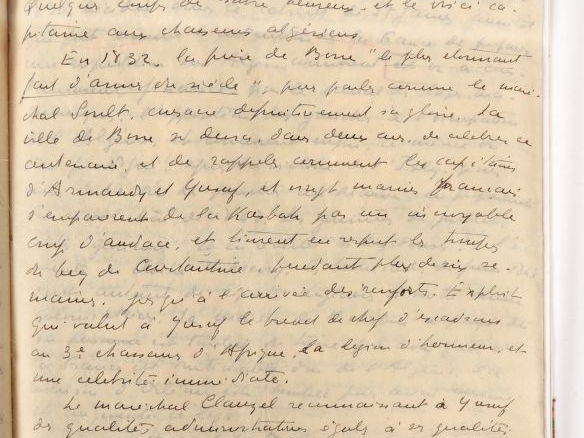 quelques coups de sabre heureux, et le voici ca-
pitaine aux chasseurs algériens.
En 1832, la prise de Bone "le plus étonnant
fait d'armes du siècle", pour parler comme le maré-
chal Soult, consacre définitivement sa gloire. La
ville de Bone se devra, dans deux ans, de célébrer ce
centenaire, et de rappeler comment les capitaines
d'Armandy et Yusuf, et vingt marins français
s'emparèrent de la Kasbah par un incroyable
coup d'audace, et tinrent en respect les troupes
du bey de Constantine pendant plus de six se-
maines, jusqu'à l'arrivée des renforts. Exploit
qui valut à Yusuf le brevet de chef d'escadrons
au 3e chasseurs d'Afrique, la légion d'honneur, et
une célébrité immédiate.
Le maréchal Clauzel reconnaissant à Yusuf
des qualités administratives égales à ses qualités